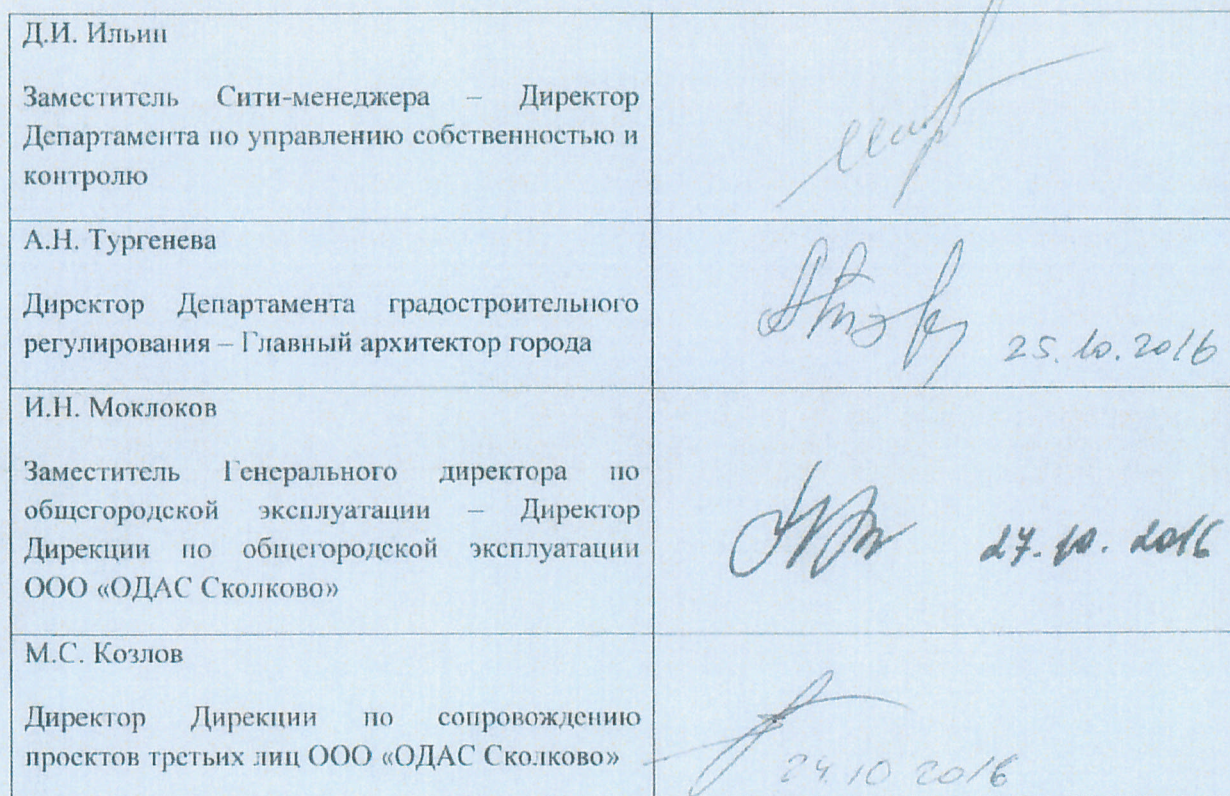 Д.И. Ильин
Заместитель Сити-менеджера – Директор
Департамента по управлению собственностью и
контролю
А.Н. Тургенева
Директор Департамента градостроительного
регулирования – Главный архитектор города
25.10.2016
И.Н. Моклоков
Заместитель Генерального директора по
общегородской эксплуатации – Директор
Дирекции по общегородской эксплуатации
ООО «ОДАС Сколково»
27.10.2016
М.С. Козлов
Директор Дирекции по сопровождению
проектов третьих лиц ООО «ОДАС Сколково»
24.10 2016